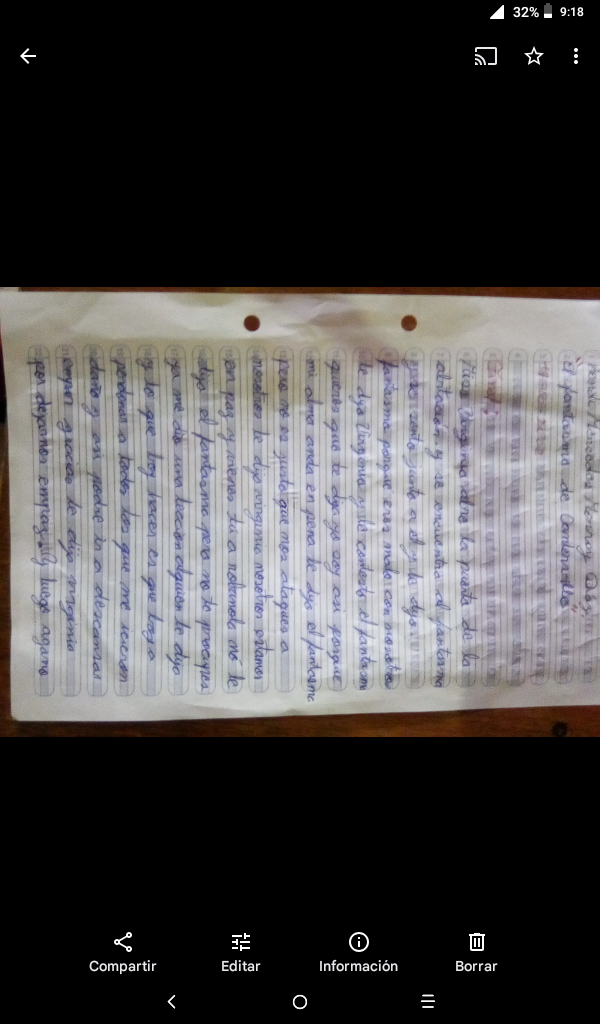 32% 9:18
El fantasma de Canterville"
Final;
abre la puerta de la
abitacion y se encuentra al fantasma
y se sento junto a el y le dijo
fantasma porque eres malo con nosotros
le dijo Virginia y le contesto el fantasma
quieres que te diga yo soy asi porque
mi alma anda en pena le dijo el fantasma
pero no es justo que nos ataques a
nosotros le dijo virginia nosotros estamos
en paz y vienes tu a molestarlo no le
dijo el fantasma pero no te preocupes
ya me dio una leccion alguien le dijo
y lo que boy hacer es que boy a
perdonar a todos los que me icieron
daño y asi podre ir a descansar
en paz gracias le dijo virginia
por dejarnos en paz. y luego agarro
Compartir Editar Información Borrar